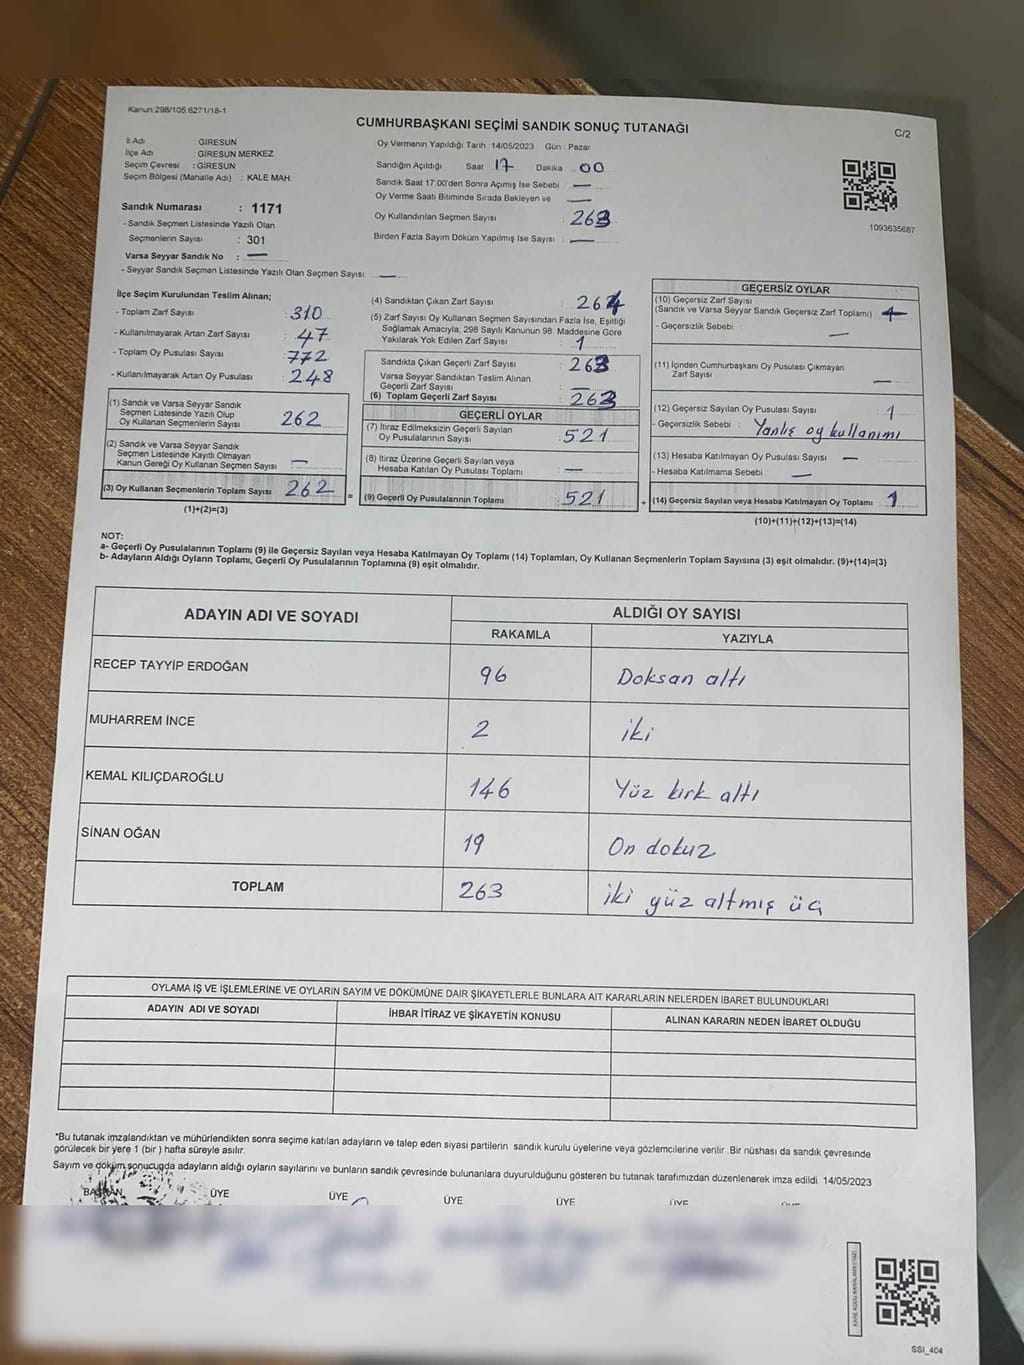 Kanun:298/105,6271/18-1
CUMHURBAŞKANI SEÇİMİ SANDIK SONUÇ TUTANAĞI
C/2
İl Adı : GİRESUN
İlçe Adı : GİRESUN MERKEZ
Seçim Çevresi : GİRESUN
Seçim Bölgesi (Mahalle Adı) : KALE MAH.
Sandık Numarası : 1171
- Sandık Seçmen Listesinde Yazılı Olan
Seçmenlerin Sayısı : 301
Varsa Seyyar Sandık No : —
- Seyyar Sandık Seçmen Listesinde Yazılı Olan Seçmen Sayısı : —
Oy Vermenin Yapıldığı Tarih :14/05/2023 Gün : Pazar
Sandığın Açıldığı Saat 17 Dakika 00
Sandık Saat 17.00'den Sonra Açımış İse Sebebi —
Oy Verme Saati Bitiminde Sırada Bekleyen ve —
Oy Kullandırılan Seçmen Sayısı : 263
Birden Fazla Sayım Döküm Yapılmış İse Sayısı : —
1093635687
İlçe Seçim Kurulundan Teslim Alınan;
- Toplam Zarf Sayısı : 310
- Kullanılmayarak Artan Zarf Sayısı : 47
- Toplam Oy Pusulası Sayısı : 772
- Kullanılmayarak Artan Oy Pusulası : 248
(1) Sandık ve Varsa Seyyar Sandık
Seçmen Listesinde Yazılı Olup
Oy Kullanan Seçmenlerin Sayısı : 262
(2) Sandık ve Varsa Seyyar Sandık
Seçmen Listesinde Kayıtlı Olmayan
Kanun Gereği Oy Kullanan Seçmen Sayısı : —
(3) Oy Kullanan Seçmenlerin Toplam Sayısı : 262 =
(1)+(2)=(3)
(4) Sandıktan Çıkan Zarf Sayısı : 264
(5) Zarf Sayısı Oy Kullanan Seçmen Sayısından Fazla İse, Eşitliği
Sağlamak Amacıyla; 298 Sayılı Kanunun 98. Maddesine Göre
Yakılarak Yok Edilen Zarf Sayısı : 1
Sandıkta Çıkan Geçerli Zarf Sayısı : 263
Varsa Seyyar Sandıktan Teslim Alınan
Geçerli Zarf Sayısı : —
(6) Toplam Geçerli Zarf Sayısı : 263
GEÇERLİ OYLAR
(7) İtiraz Edilmeksizin Geçerli Sayılan
Oy Pusulalarının Sayısı : 521
(8) İtiraz Üzerine Geçerli Sayılan veya
Hesaba Katılan Oy Pusulası Toplamı : —
(9) Geçerli Oy Pusulalarının Toplamı : 521 +
GEÇERSİZ OYLAR
(10) Geçersiz Zarf Sayısı
(Sandık ve Varsa Seyyar Sandık Geçersiz Zarf Toplamı) :
- Geçersizlik Sebebi : —
(11) İçinden Cumhurbaşkanı Oy Pusulası Çıkmayan
Zarf Sayısı : —
(12) Geçersiz Sayılan Oy Pusulası Sayısı : 1
- Geçersizlik Sebebi : Yanlış oy kullanımı
(13) Hesaba Katılmayan Oy Pusulası Sayısı : —
- Hesaba Katılmama Sebebi : —
(14) Geçersiz Sayılan veya Hesaba Katılmayan Oy Toplamı : 1
(10)+(11)+(12)+(13)=(14)
NOT:
a- Geçerli Oy Pusulalarının Toplamı (9) ile Geçersiz Sayılan veya Hesaba Katılmayan Oy Toplamı (14) Toplamları, Oy Kullanan Seçmenlerin Toplam Sayısına (3) eşit olmalıdır. (9)+(14)=(3)
b- Adayların Aldığı Oyların Toplamı, Geçerli Oy Pusulalarının Toplamına (9) eşit olmalıdır.
ADAYIN ADI VE SOYADI
ALDIĞI OY SAYISI
RAKAMLA YAZIYLA
RECEP TAYYİP ERDOĞAN 96 Doksan altı
MUHARREM İNCE 2 iki
KEMAL KILIÇDAROĞLU 146 Yüz kırk altı
SİNAN OĞAN 19 On dokuz
TOPLAM 263 iki yüz altmış üç
OYLAMA İŞ VE İŞLEMLERİNE VE OYLARIN SAYIM VE DÖKÜMÜNE DAİR ŞİKAYETLERLE BUNLARA AİT KARARLARIN NELERDEN İBARET BULUNDUKLARI
ADAYIN ADI VE SOYADI İHBAR İTİRAZ VE ŞİKAYETİN KONUSU ALINAN KARARIN NEDEN İBARET OLDUĞU
*Bu tutanak imzalandıktan ve mühürlendikten sonra seçime katılan adayların ve talep eden siyasi partilerin sandık kurulu üyelerine veya gözlemcilerine verilir. Bir nüshası da sandık çevresinde
görülecek bir yere 1 (bir ) hafta süreyle asılır.
Sayım ve döküm sonucunda adayların aldığı oyların sayılarını ve bunların sandık çevresinde bulunanlara duyurulduğunu gösteren bu tutanak tarafımızdan düzenlenerek imza edildi. 14/05/2023
BAŞKAN ÜYE ÜYE ÜYE ÜYE ÜYE ÜYE
SSI_404